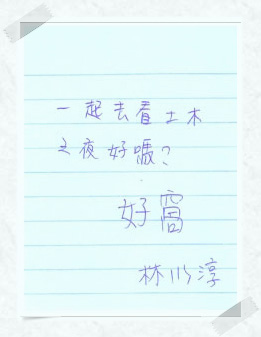 一起去看土木
之夜好嗎?
好窩
林川淳